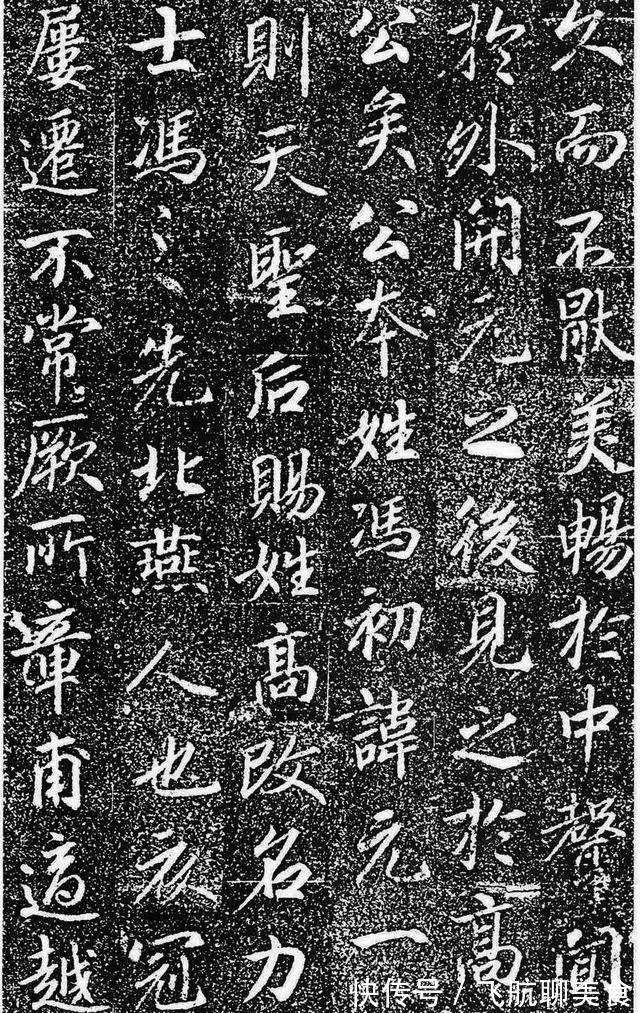 久而不猒美暢於中聲聞
於外開元之後見之於高
公矣公本姓馮初諱元一
則天聖后賜姓高改名力
士馮之先北燕人也衣冠
屢遷不常厥所章甫適越
快传号 / 飞航聊美食